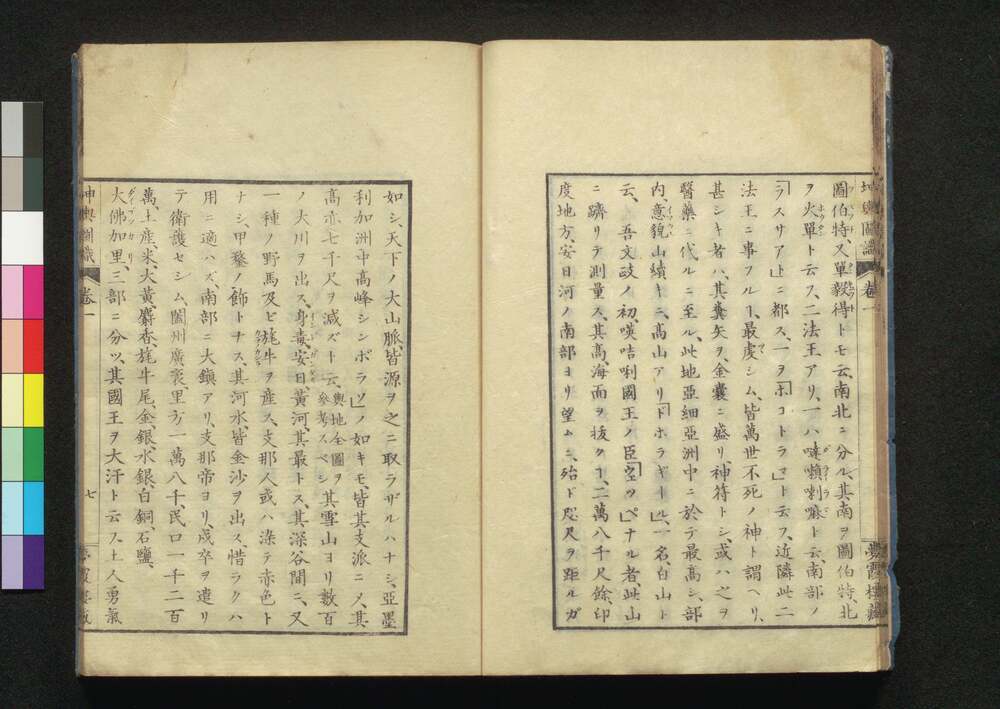 坤輿圖識
卷一
圖伯特、又單毅得トモ云、南北ニ分ル、其南ヲ圖伯特、北
ヲ火單ト云フ、二法王アリ、一ハ噠頼喇嘛ト云、南部ノ
「ラスサア」ニ都ス、一ヲ「ボコトラマ」ト云フ、近隣此二
法王ニ事フルヿ、最虔シム、皆萬世不死ノ神ト謂ヘリ、
甚シキ者ハ、其糞矢ヲ、金嚢ニ盛リ、神符トシ、或ハ之ヲ
醫藥ニ代ルニ至ル、此地亞細亞洲中ニ於テ最高シ、部
内、意貌山續キニ、高山アリ「ドホラギール」一名、白山ト
云、吾文政ノ初、嘆咭唎國王ノ臣「ウヱッペ」ナル者、此山
ニ躋リテ測量ス、其高、海面ヲ抜クヿ、二萬八千尺餘、印
度地方、安日河ノ南部ヨリ望ムニ、殆ド咫尺ヲ距ルガ
如シ、天下ノ大山脈、皆源ヲ之ニ取ラザルハナシ、亞墨
利加洲中高峰「シンボラソ」ノ如キモ、皆其支派ニメ、其
高亦七千尺ヲ減ズト云、輿地全圖ヲ參考スベシ其雪山ヨリ數百
ノ大川ヲ出ス、身毒、安日、黄河其最トス、其深谷間ニ、又
一種ノ野馬及ビ旄牛ヲ産ス、支那人或ハ染テ赤色ト
ナシ、甲鍪ノ飾トナス、其河水皆金沙ヲ出ス、惜ラクハ
用ニ適ハズ、南部ニ大鎭アリ、支那帝ヨリ、戍卒ヲ遣リ
テ衛護セシム、闔州廣袤、里方一萬八千、民口一千二百
萬、土産、米、大黄、麝香、旄牛尾、金、銀、水銀、白銅、石鹽、
大佛加里、三部ニ分ツ、其國王ヲ大汗ト云フ、土人勇氣
坤輿圖識
卷一
七